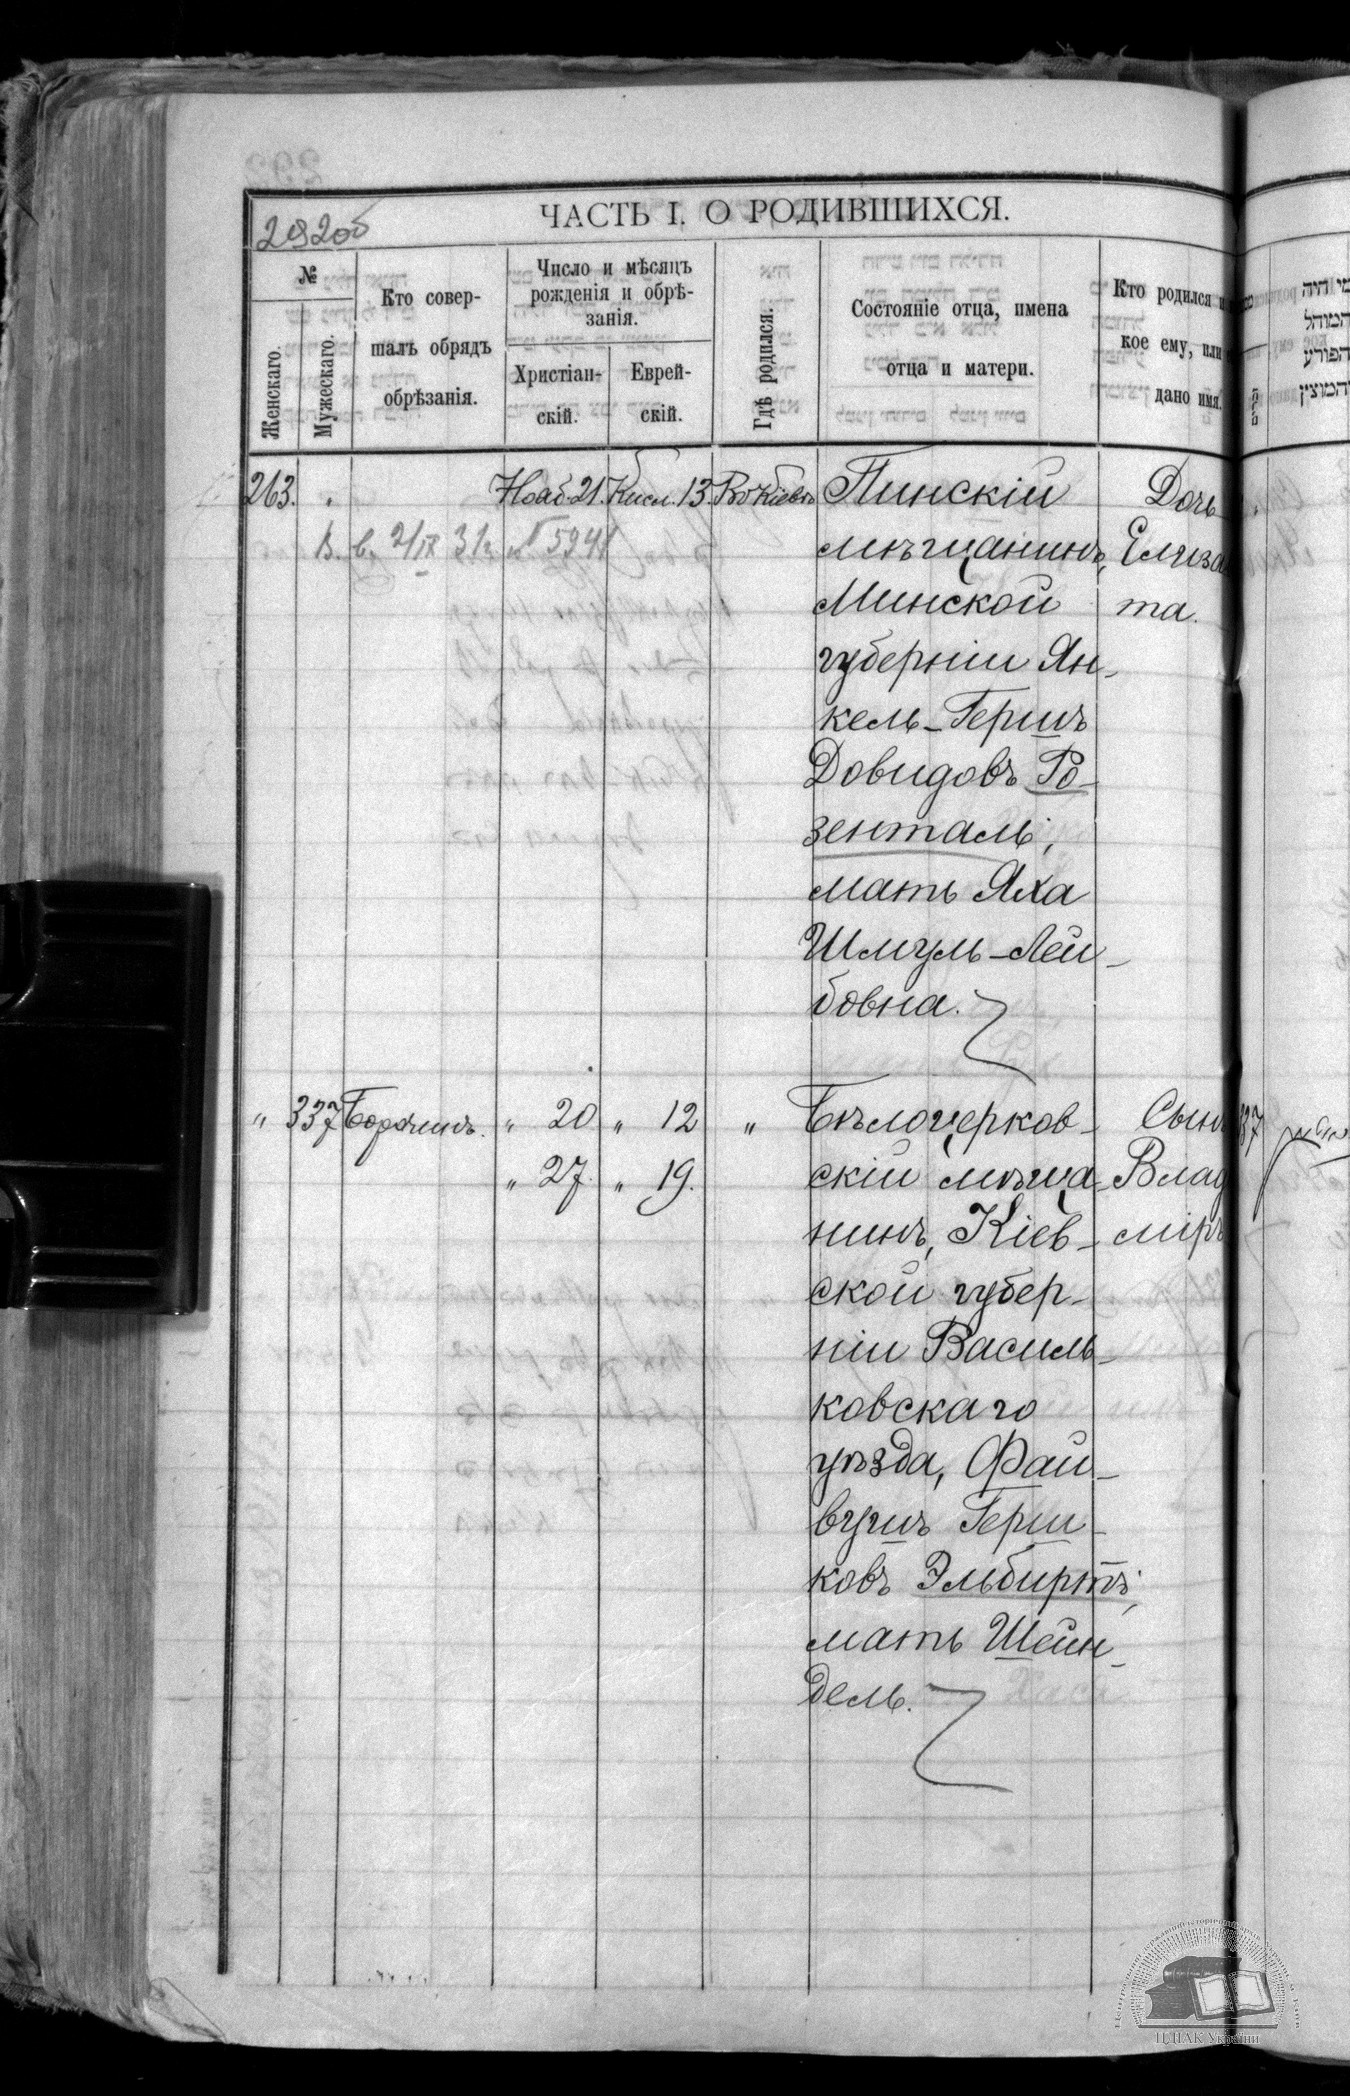 292об
ЧАСТЬ I. О РОДИВШИХСЯ.
№
Женскаго.
Мужескаго.
Кто совер-
шалъ обрядъ
обрѣзанія.
Число и мѣсяцъ
рожденія и обрѣ-
занія.
Христіан-
скій.
Еврей-
скій.
Гдѣ родился.
Состояніе отца, имена
отца и матери.
Кто родился и
кое ему, или
дано имя.
מי היה
המוהל
הפורע
והמוצץ
263. Нояб. 21. Кисл. 13. Въ Кіевѣ
Пинскій
мѣщанинъ,
Минской
губерніи Ян-
кель-Гершъ
Довидовъ Ро-
зенталь;
мать Яха
Шмуль-Лей-
бовна.
Дочь
Елиза
та.
В. в. 2/IX 31 г. № 5941
" 337 " 20 " 12 "
" 27. " 19.
Бѣлоцерков-
скій мѣща-
нинъ, Кіев-
ской губер-
ніи Василь-
ковскаго
уѣзда, Фай-
вушъ Герш-
ковъ Эльбиртъ;
мать Шейн-
дель.
Сынъ
Влад
міръ
337